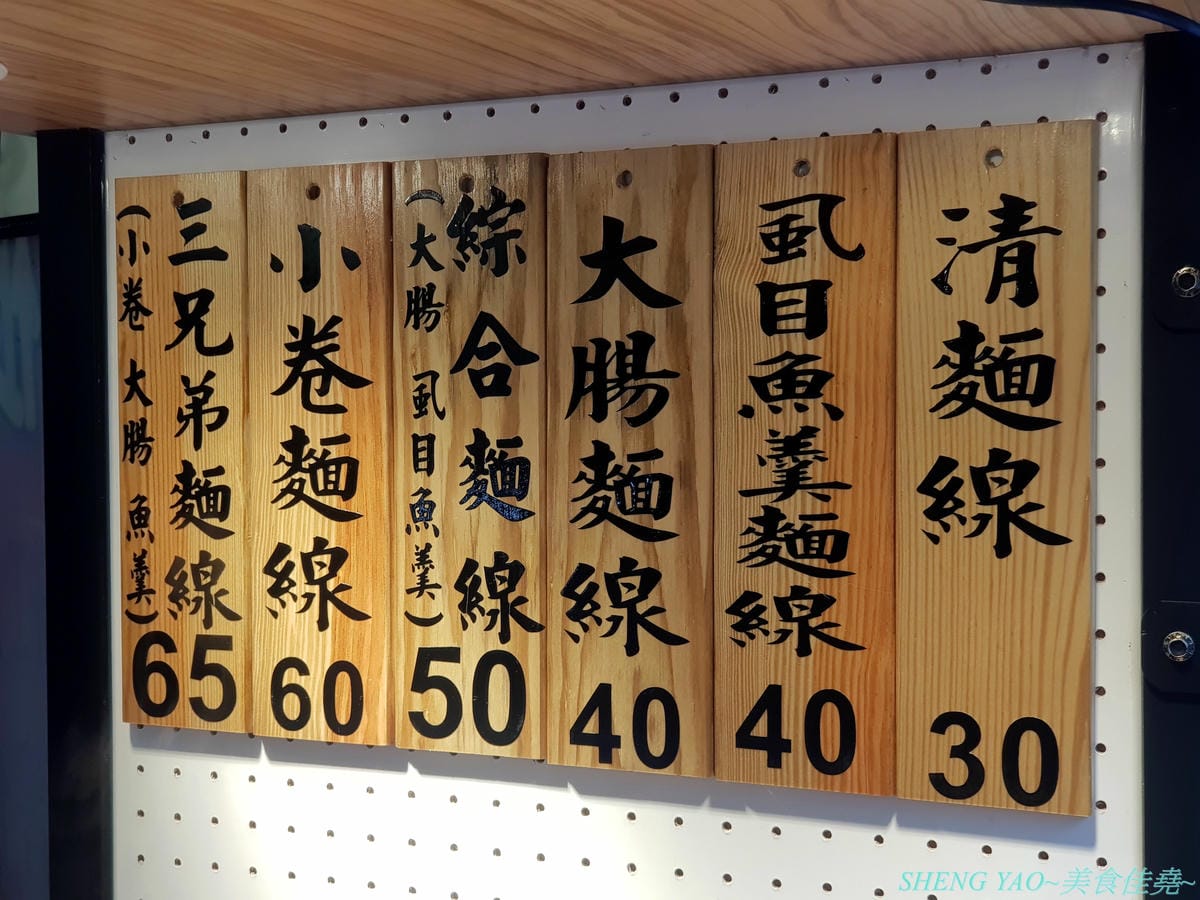 清麵線
30
虱目魚羹麵線
40
大腸麵線
40
綜合麵線
(大腸 虱目魚羹)
50
小卷麵線
60
三兄弟麵線
(小卷 大腸 魚羹)
65
SHENG YAO~美食佳堯~